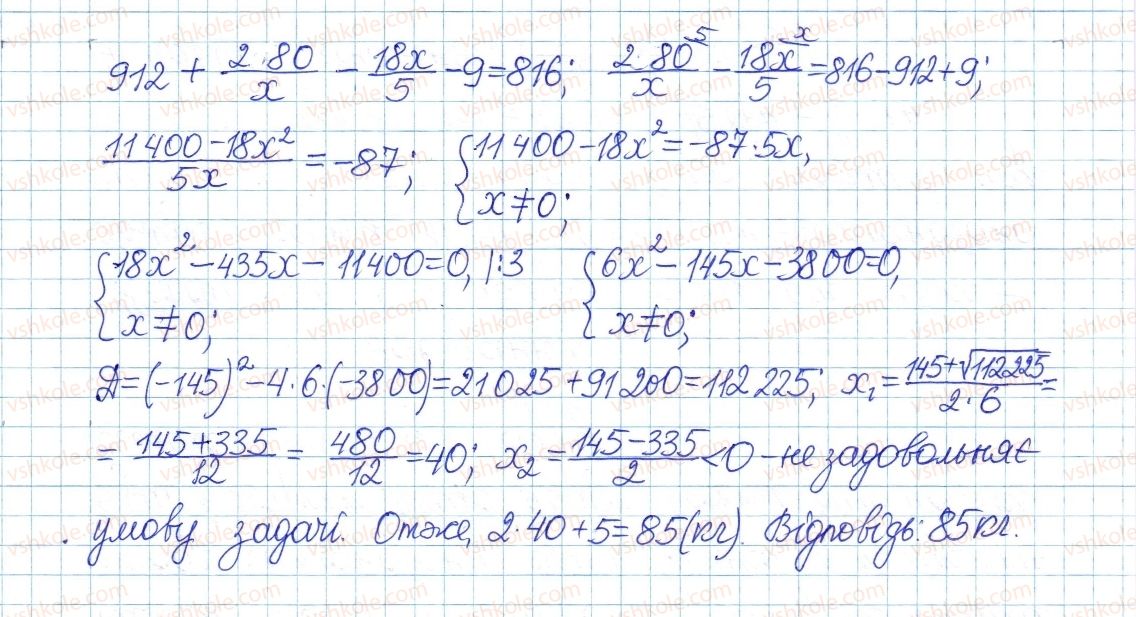 912 + 2·80/x − 18x/5 − 9 = 816; 2·80⁵/x − 18xˣ/5 = 816 − 912 + 9;
(11400 − 18x²)/5x = −87; { 11400 − 18x² = −87·5x, x ≠ 0;
{ 18x² − 435x − 11400 = 0, |:3 x ≠ 0; { 6x² − 145x − 3800 = 0, x ≠ 0;
Д = (−145)² − 4·6·(−3800) = 21025 + 91200 = 112225; x₁ = (145 + √112225)/(2·6) =
= (145 + 335)/12 = 480/12 = 40; x₂ = (145 − 335)/2 < 0 – не задовольняє
умову задачі. Отже, 2·40 + 5 = 85 (кг). Відповідь: 85 кг.
vshkole.com